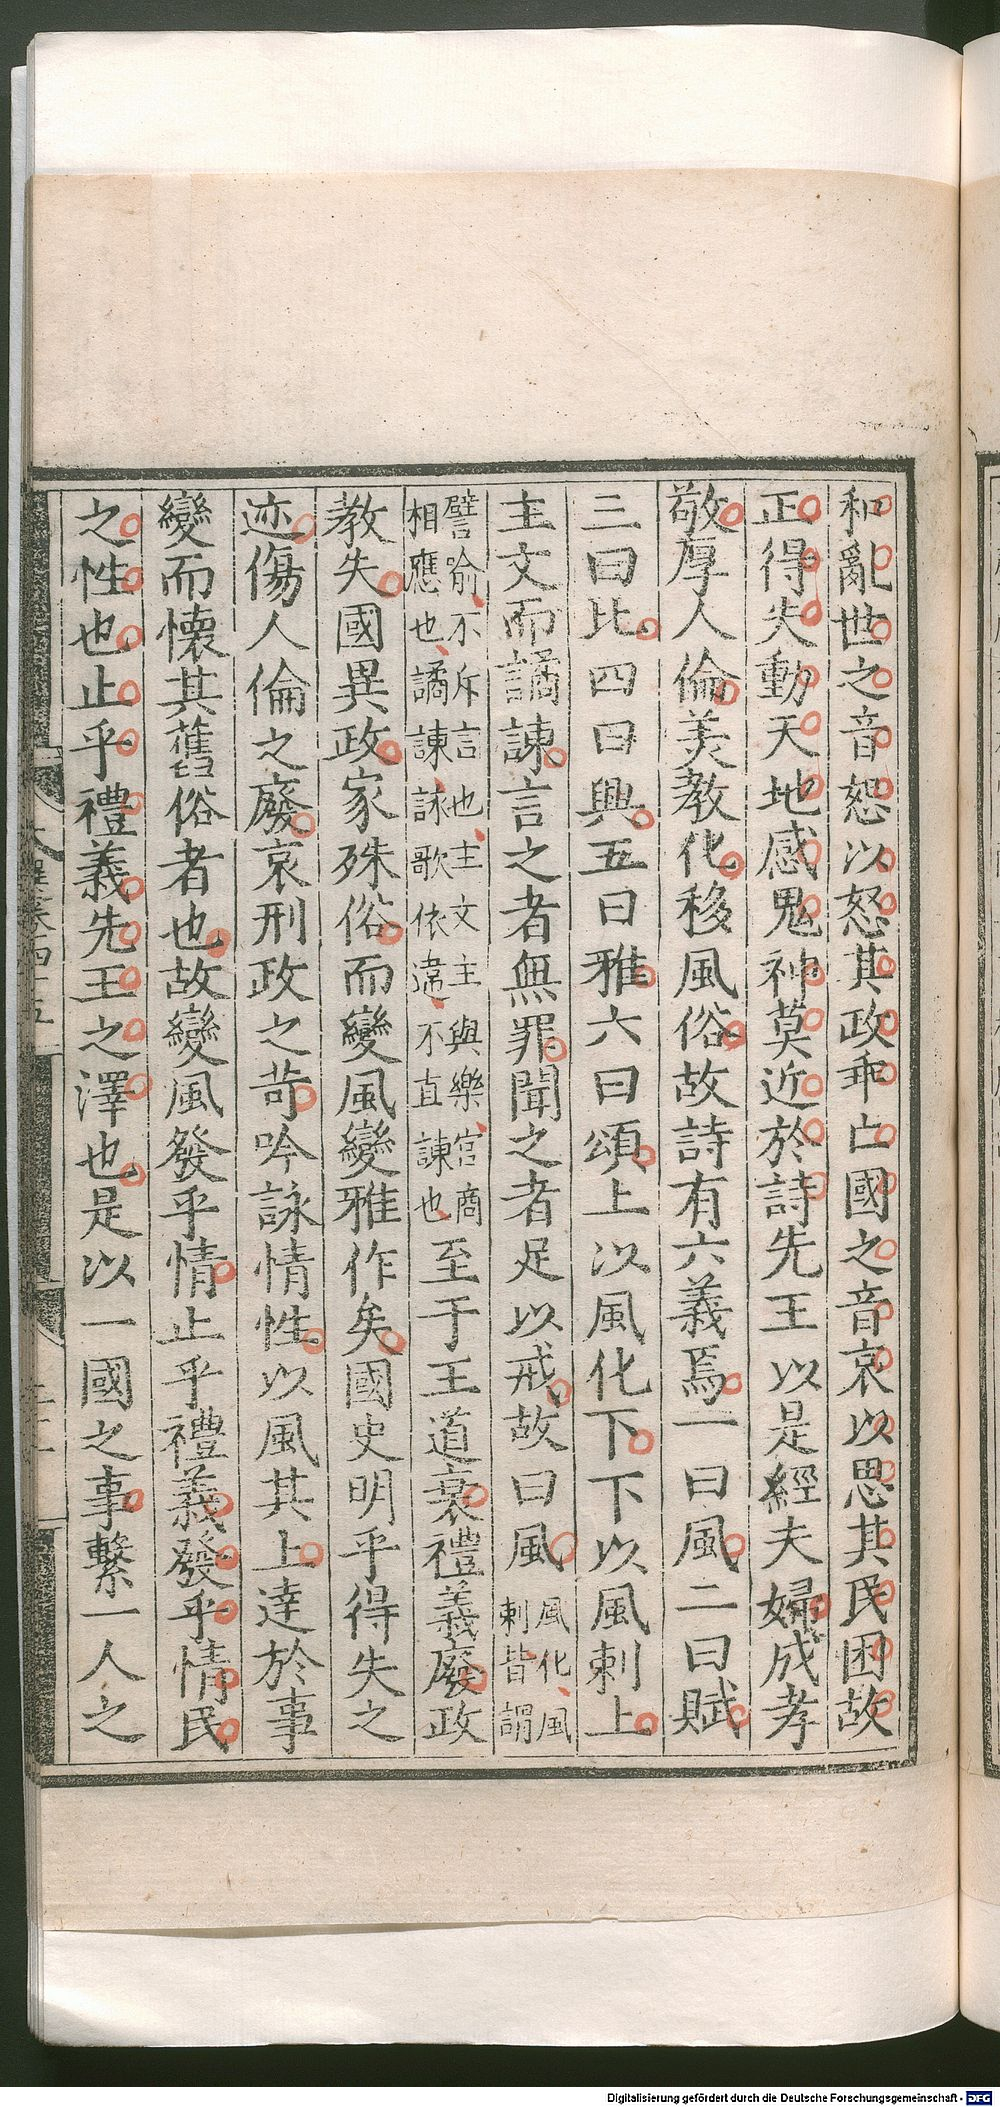 和亂世之音怨以怒其政乖亡國之音哀以思其民困故
正得失動天地感鬼神莫近於詩先王以是經夫婦成孝
敬厚人倫美教化移風俗故詩有六義焉一曰風二曰賦
三曰比四曰興五曰雅六曰頌上以風化下下以風刺上
主文而譎諫言之者無罪聞之者足以戒故曰風風化風刺皆謂
譬喻不斥言也主文主與樂宮商相應也譎諫詠歌依違不直諫也至于王道衰禮義廢政
教失國異政家殊俗而變風變雅作矣國史明乎得失之
迹傷人倫之廢哀刑政之苛吟詠情性以風其上達於事
變而懷其舊俗者也故變風發乎情止乎禮義發乎情民
之性也止乎禮義先王之澤也是以一國之事繫一人之
Digitalisierung gefördert durch die Deutsche Forschungsgemeinschaft - DFG